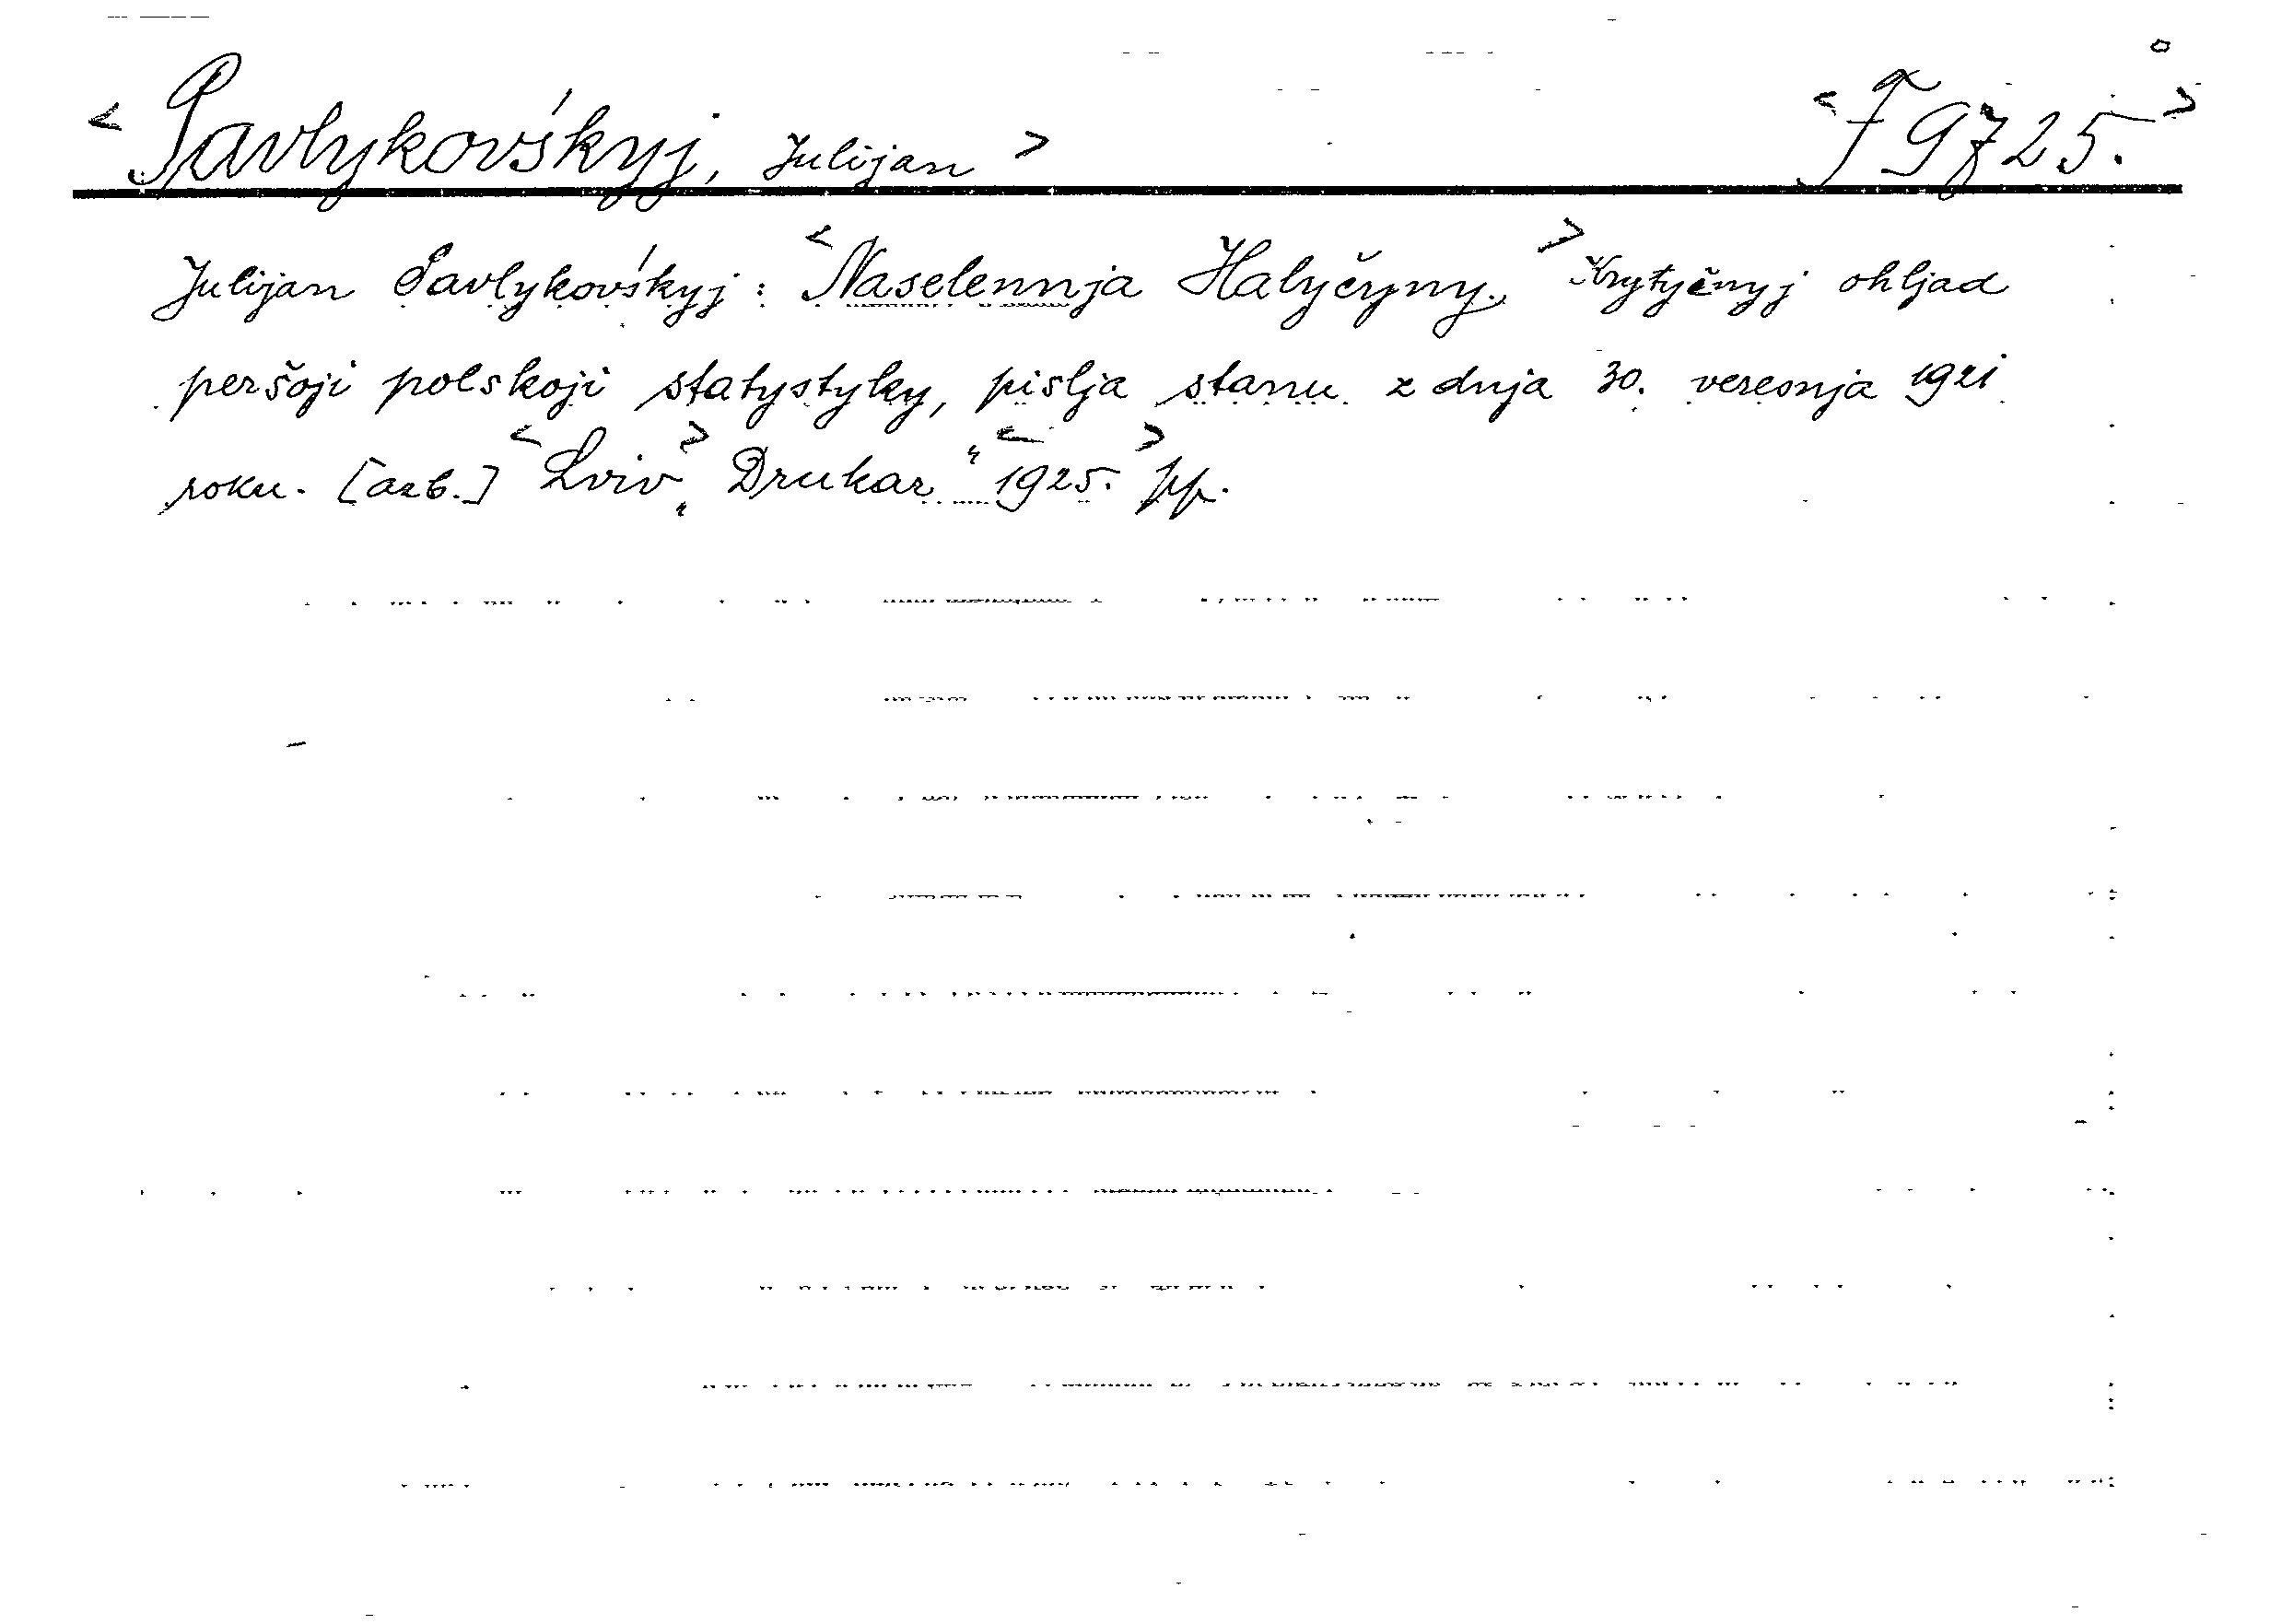 < Pavlykovśkyj, Julijan > < F 9725. >
Julijan Pavlykovśkyj : < Naselennja Halyčyny. > Krytyčnyj ohljad
peršoji polskoji statystyky, pislja stanu z dnja 30. veresnja 1921
roku. [azb.] < Lviv > „Drukar“ < 1925. >